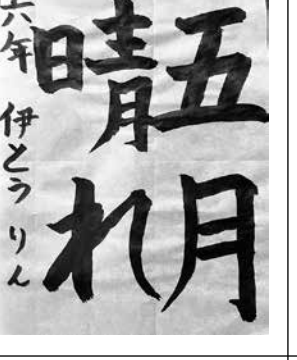 五月
晴れ
六年 伊とう りん